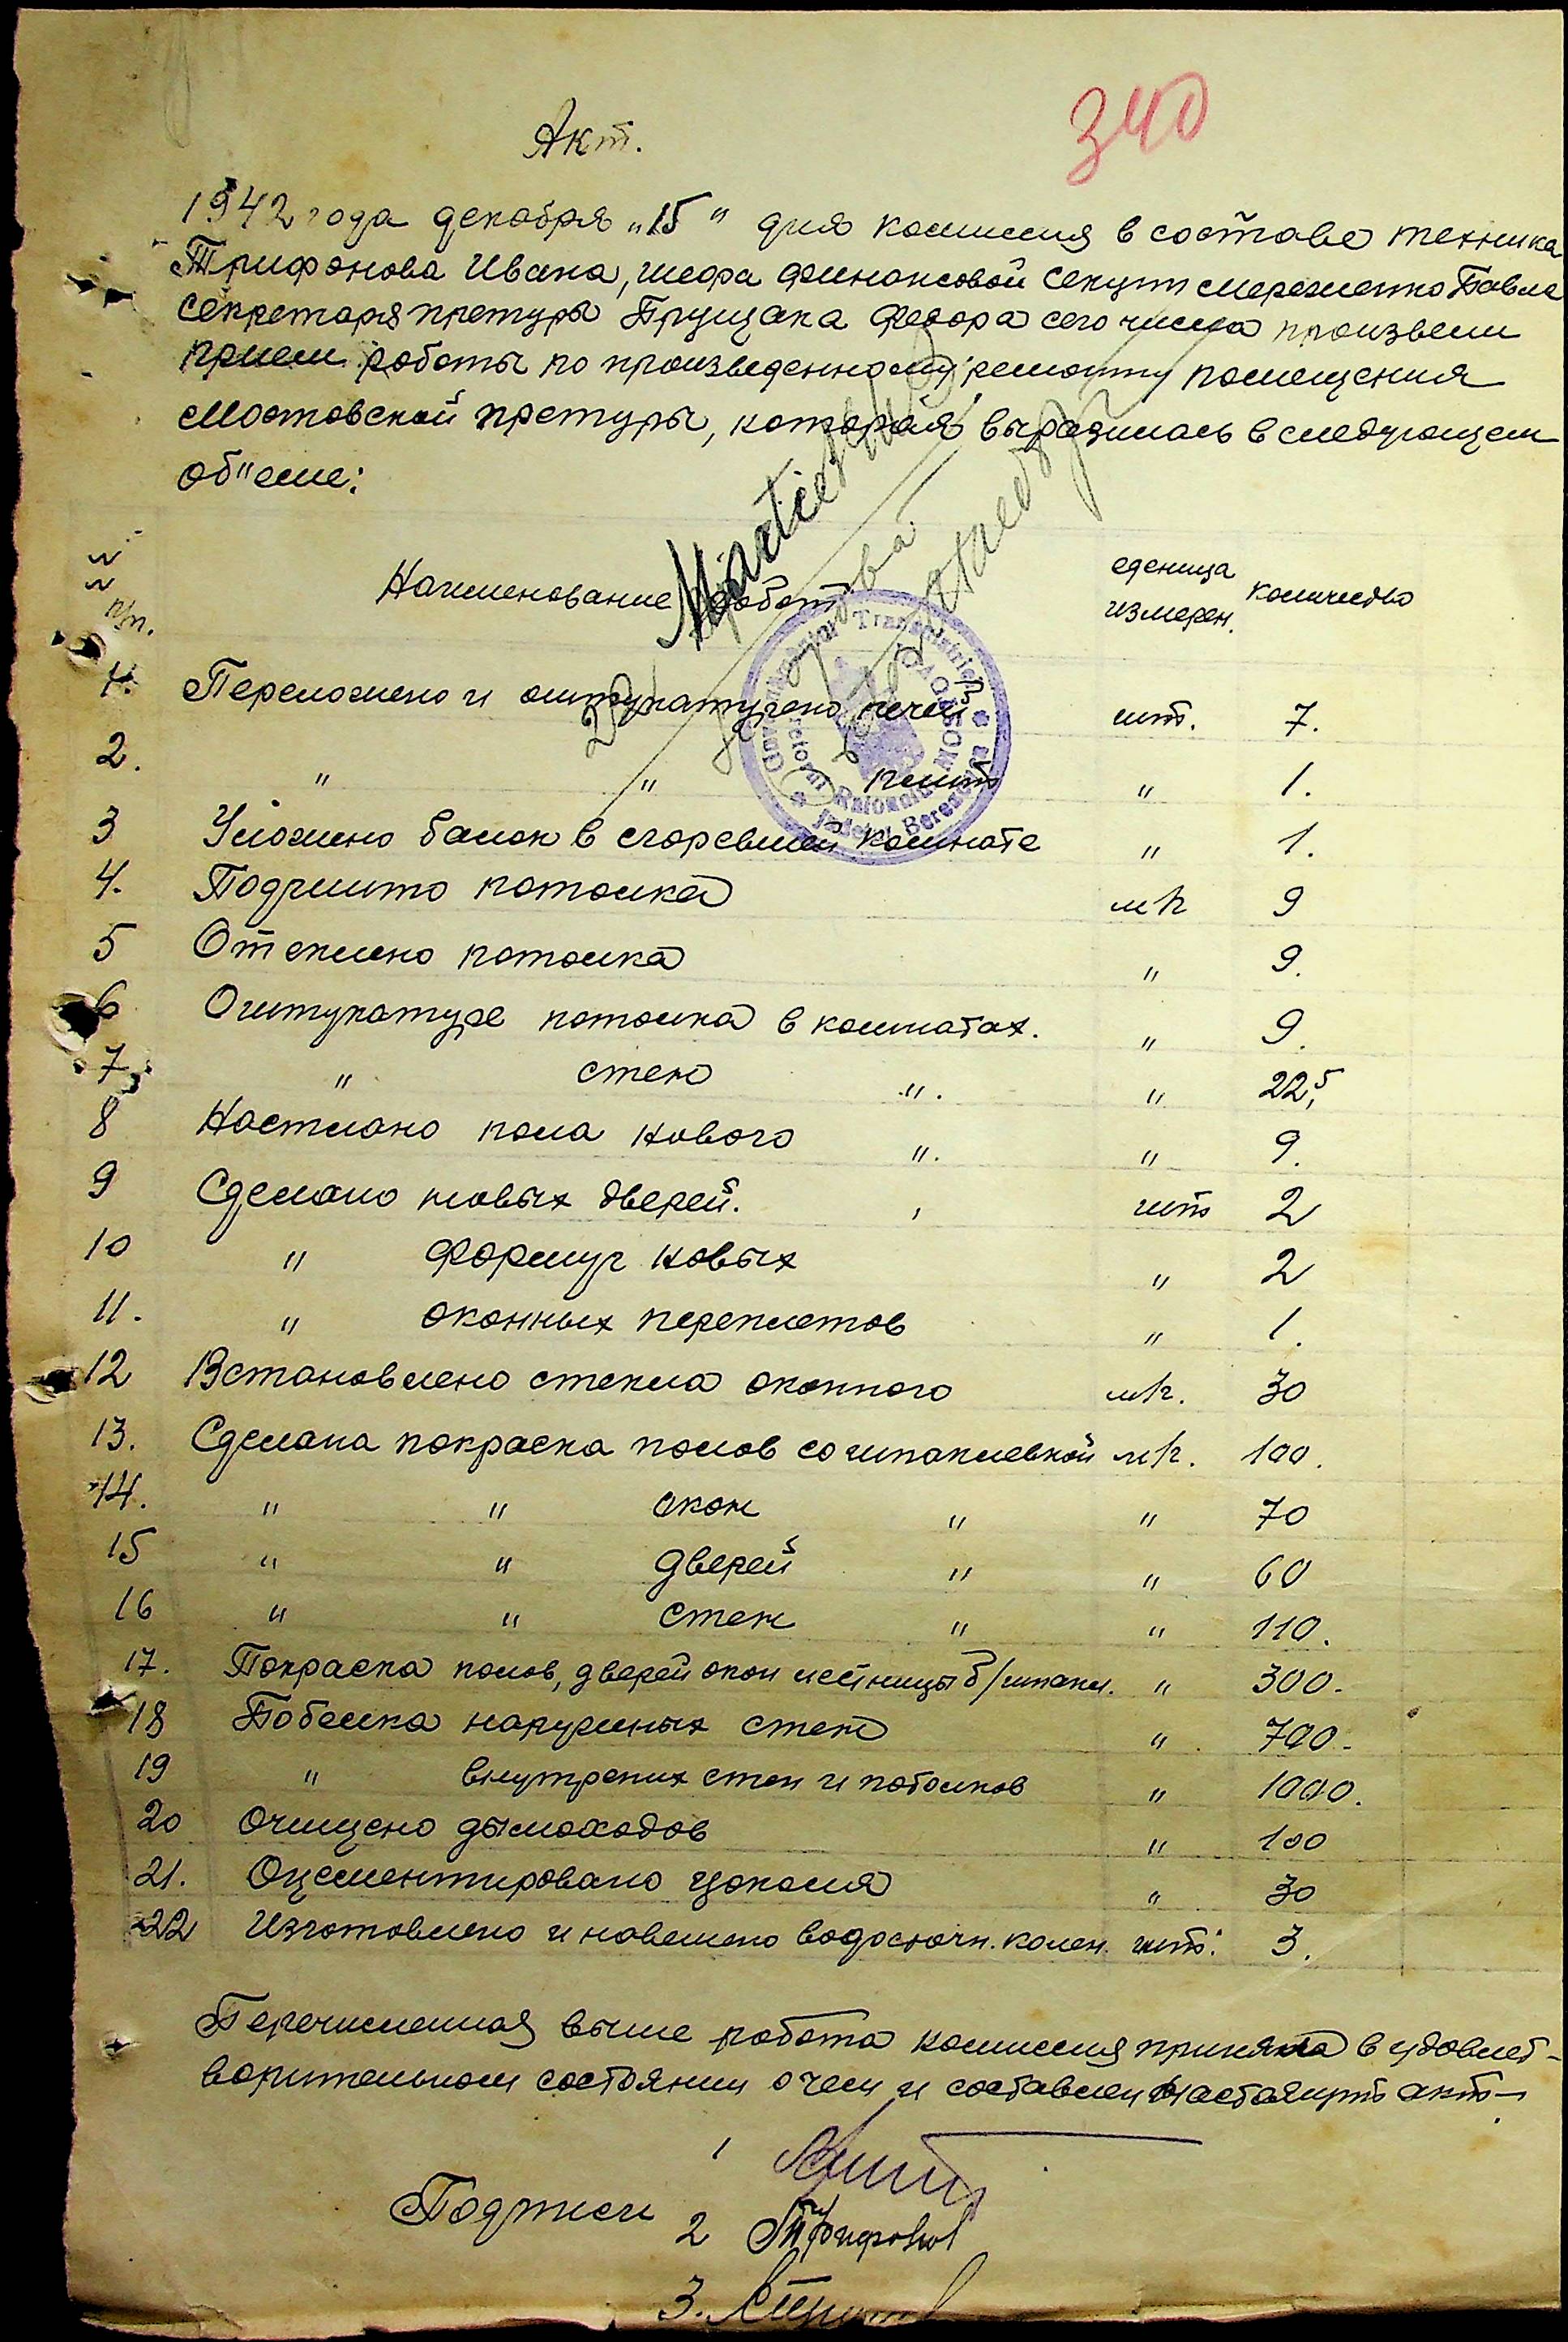 340
Акт.
1942 года декабря "15" дня комиссия в составе техника
Трифонова Ивана, шефа финансовой секции Мережетко Павла
секретаря претуры Прущака Федора сего числа произвели
прием работы по произведенному ремонту помещения
Мостовской претуры, которая выразилась в следующем
об"еме:
№ № п/п.
Наименование работ
еденица измерен.
количество
1. Переложено и оштукатурено печей шт. 7.
2. " " плит " 1.
3 Уложено балок в сгоревшей комнате " 1.
4. Подшито потолка м/к 9
5 Отеплено потолка " 9.
6 Оштукатуре потолка в комнатах. " 9.
7. " стен ". " 22,5
8 Настлано пола нового ". " 9.
9 Сделано новых дверей. , шт 2
10 " формуг новых " 2
11. " оконных переплетов " 1.
12 Встановлено стекла оконного м/к. 30
13. Сделана покраска полов со шпаклевкой м/к. 100.
14. " " окон " " 70
15 " " дверей " " 60
16 " " стен " " 110.
17. Покраска полов, дверей окон лестницы б/шпакл. " 300.
18 Побелка наружных стен " 700.
19 " внутрених стен и потолков " 1000.
20 Очищено дымоходов " 100
21. Оцементировано цоколя " 30
22 Изготовлено и навешено водосточн. колен. шт. 3.
Guvernământul Transnistriei
Pretorul Raionului MOSTOVOI
Județul Berezovca
Перечисленная выше работа комиссия приняла в удовлет-
ворительном состоянии о чем и составлен настоящий акт
Подписи
1
2 Трифонов
3.